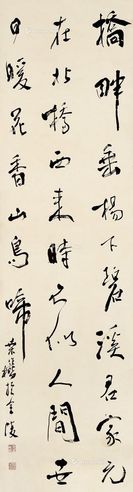 橋畔垂楊下碧溪君家元
在北橋西來時不似人間世
日暖花香山鳥啼
於金陵